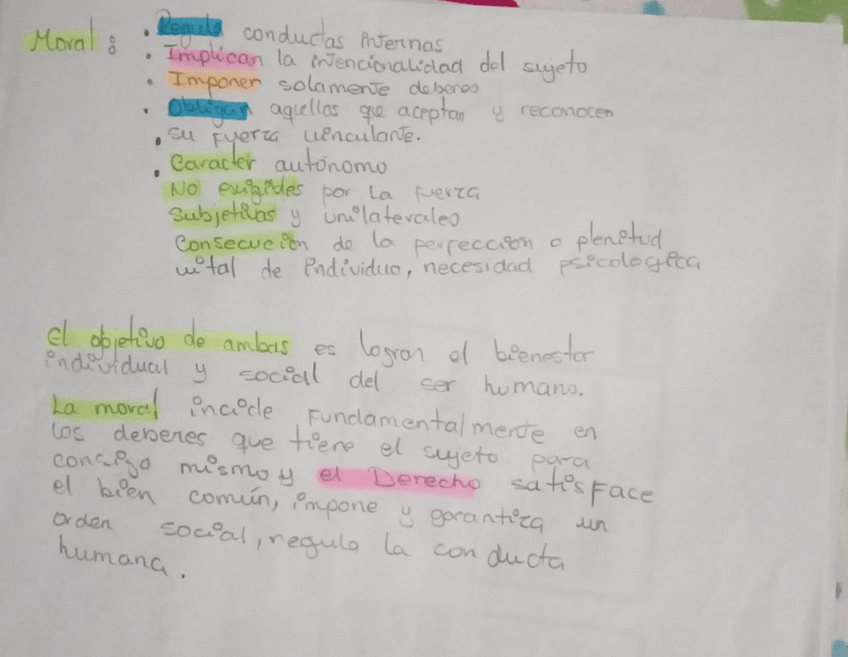 Moral : • Regula conductas internas
• Implican la intencionalidad del sujeto
• Imponer solamente deberes
• Obligan aquellos que aceptan y reconocen
• su fuerza vinculante.
• Caracter autónomo
No exigides por la fuerza
Subjetivas y unilaterales
Consecución de la perfección o plenitud
vital de individuo, necesidad psicologica
El objetivo de ambas es logran el bienestar
individual y social del ser humano.
La moral incide fundamentalmente en
los deberes que tiene el sujeto para
consigo mismo y el Derecho satisface
el bien común, impone y garantiza un
orden social, regula la conducta
humana.